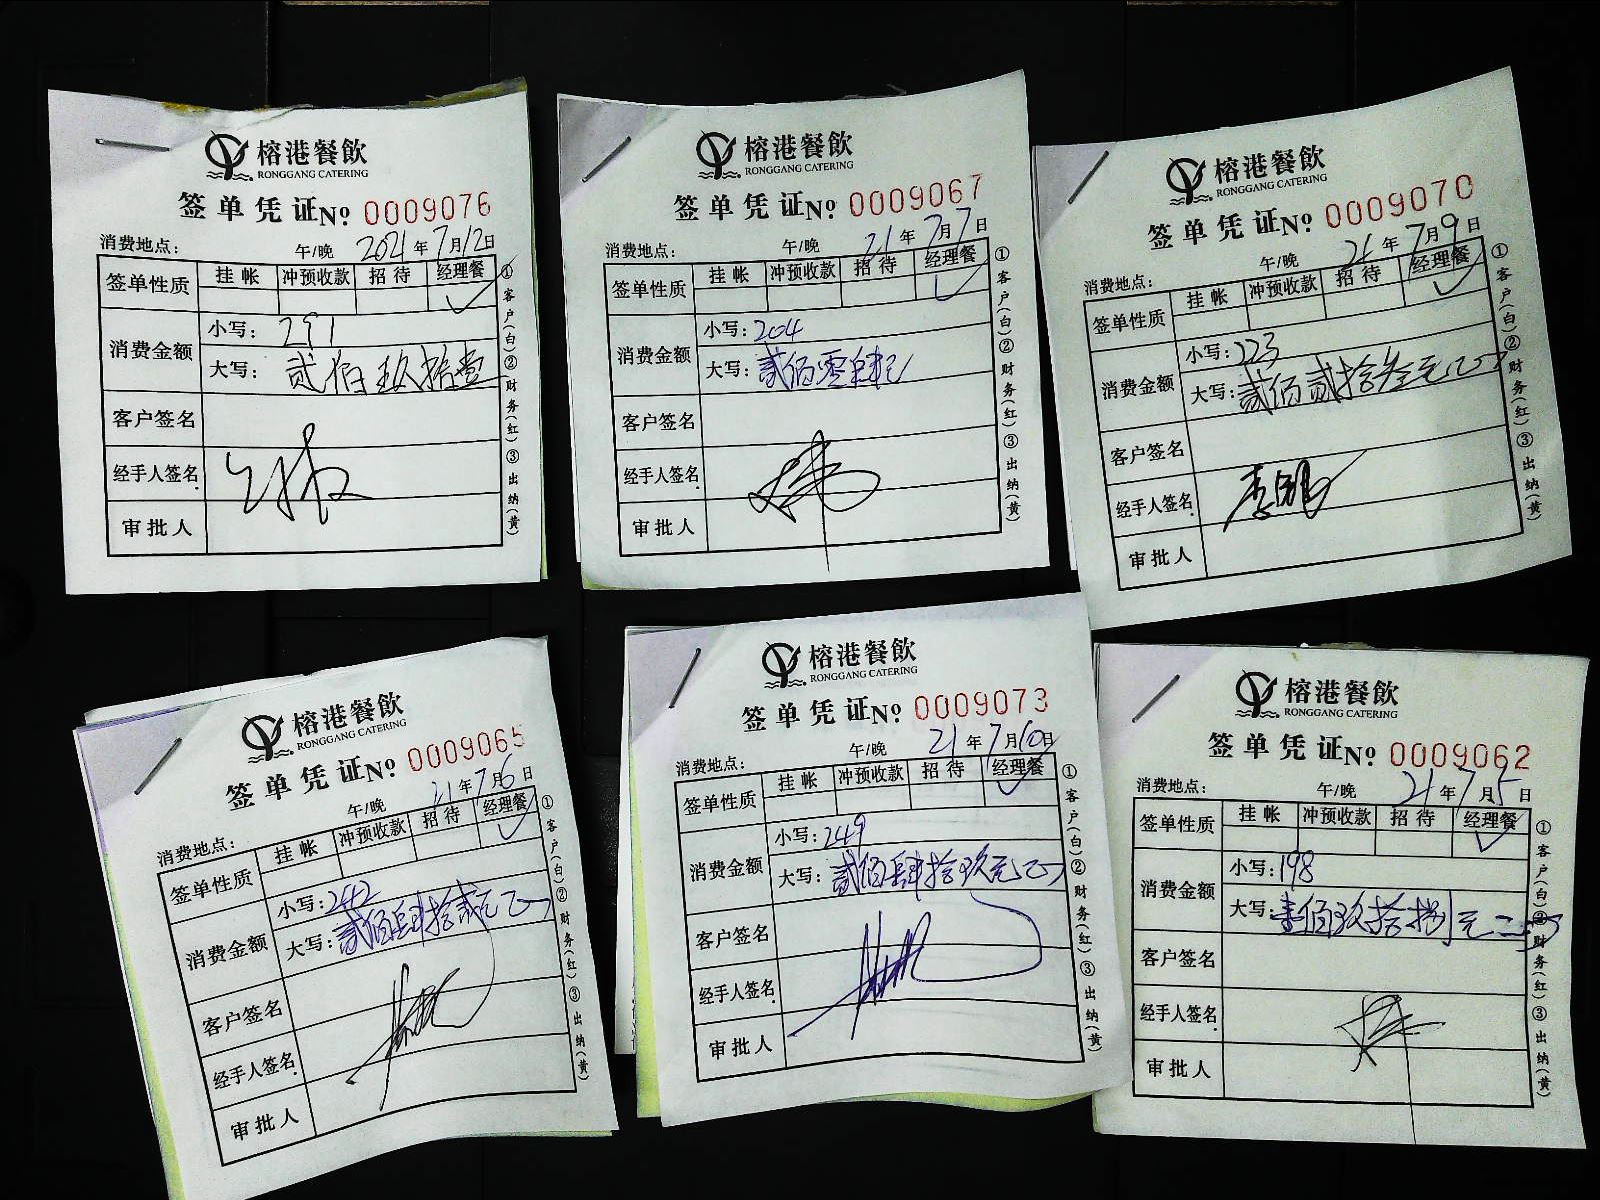 榕港餐飲
RONGGANG CATERING
签单凭证 No 0009076
消费地点: 午/晚 2021年7月12日
签单性质 挂帐 冲预收款 招待 经理餐
消费金额 小写: 291
大写: 贰佰玖拾壹
客户签名
经手人签名
审批人
①客户(白)②财务(红)③出纳(黄)
榕港餐飲
RONGGANG CATERING
签单凭证 No 0009067
消费地点: 午/晚 21年7月7日
签单性质 挂帐 冲预收款 招待 经理餐
消费金额 小写: 204
大写: 贰佰零肆元
客户签名
经手人签名
审批人
①客户(白)②财务(红)③出纳(黄)
榕港餐飲
RONGGANG CATERING
签单凭证 No 0009070
消费地点: 午/晚 21年7月9日
签单性质 挂帐 冲预收款 招待 经理餐
消费金额 小写: 223
大写: 贰佰贰拾叁元
客户签名
经手人签名
审批人
①客户(白)②财务(红)③出纳(黄)
榕港餐飲
RONGGANG CATERING
签单凭证 No 0009065
消费地点: 午/晚 21年7月6日
签单性质 挂帐 冲预收款 招待 经理餐
消费金额 小写: 242
大写: 贰佰肆拾贰元
客户签名
经手人签名
审批人
①客户(白)②财务(红)③出纳(黄)
榕港餐飲
RONGGANG CATERING
签单凭证 No 0009073
消费地点: 午/晚 21年7月10日
签单性质 挂帐 冲预收款 招待 经理餐
消费金额 小写: 249
大写: 贰佰肆拾玖元
客户签名
经手人签名
审批人
①客户(白)②财务(红)③出纳(黄)
榕港餐飲
RONGGANG CATERING
签单凭证 No 0009062
消费地点: 午/晚 21年7月5日
签单性质 挂帐 冲预收款 招待 经理餐
消费金额 小写: 198
大写: 壹佰玖拾捌元
客户签名
经手人签名
审批人
①客户(白)②财务(红)③出纳(黄)